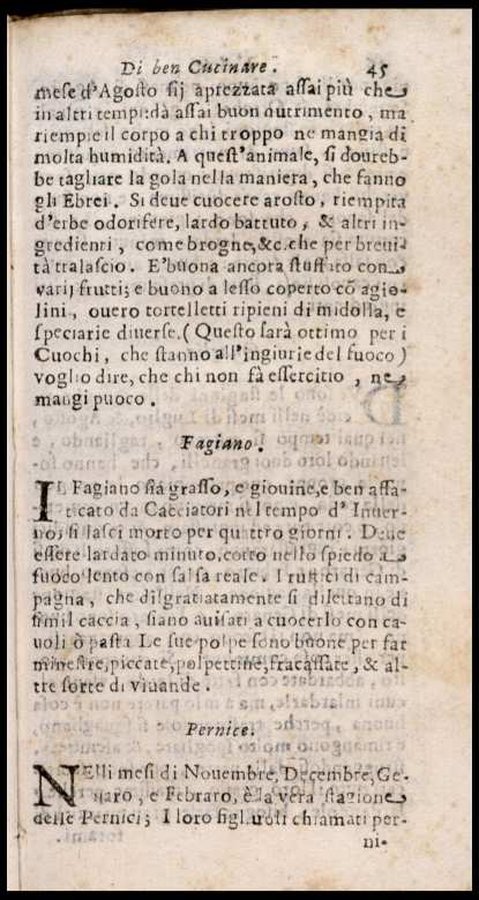 Di ben Cucinare. 45
mese d'Agosto sij aprezzata assai più che
in altri tempi: dà assai buon nutrimento, ma
riempie il corpo a chi troppo ne mangia di
molta humidità. A quest'animale, si doureb-
be tagliare la gola nella maniera, che fanno
gli Ebrei. Si deue cuocere arosto, riempita
d'erbe odorifere, lardo battuto, & altri in-
gredienti, come brogne, &c. che per breui-
tà tralascio. E' buona ancora stuffato con
varij frutti; e buono a lesso coperto cō agio-
lini, ouero tortelletti ripieni di midolla, e
speciarie diuerse. (Questo sarà ottimo per i
Cuochi, che stanno all'ingiurie del fuoco)
voglio dire, che chi non fà essercitio, ne
mangi puoco.
Fagiano.
IL Fagiano sia grasso, e giouine, e ben affa-
ticato da Cacciatori nel tempo d' Inuer-
no, si lasci morto per quattro giorni. Deue
essere lardato minuto, cotto nello spiedo a
fuoco lento con salsa reale. I rustici di cam-
pagna, che disgratiatamente si dilettano di
simil caccia, siano auisati a cuocerlo con ca-
uoli ò pasta Le sue polpe sono buone per far
minestre, piccate, polpettine, fracassate, & al-
tre sorte di viuande.
Pernice.
NElli mesi di Nouembre, Decembre, Ge-
naro, e Febraro, è la vera stagione
delle Pernici; I loro figliuoli chiamati per-
ni-